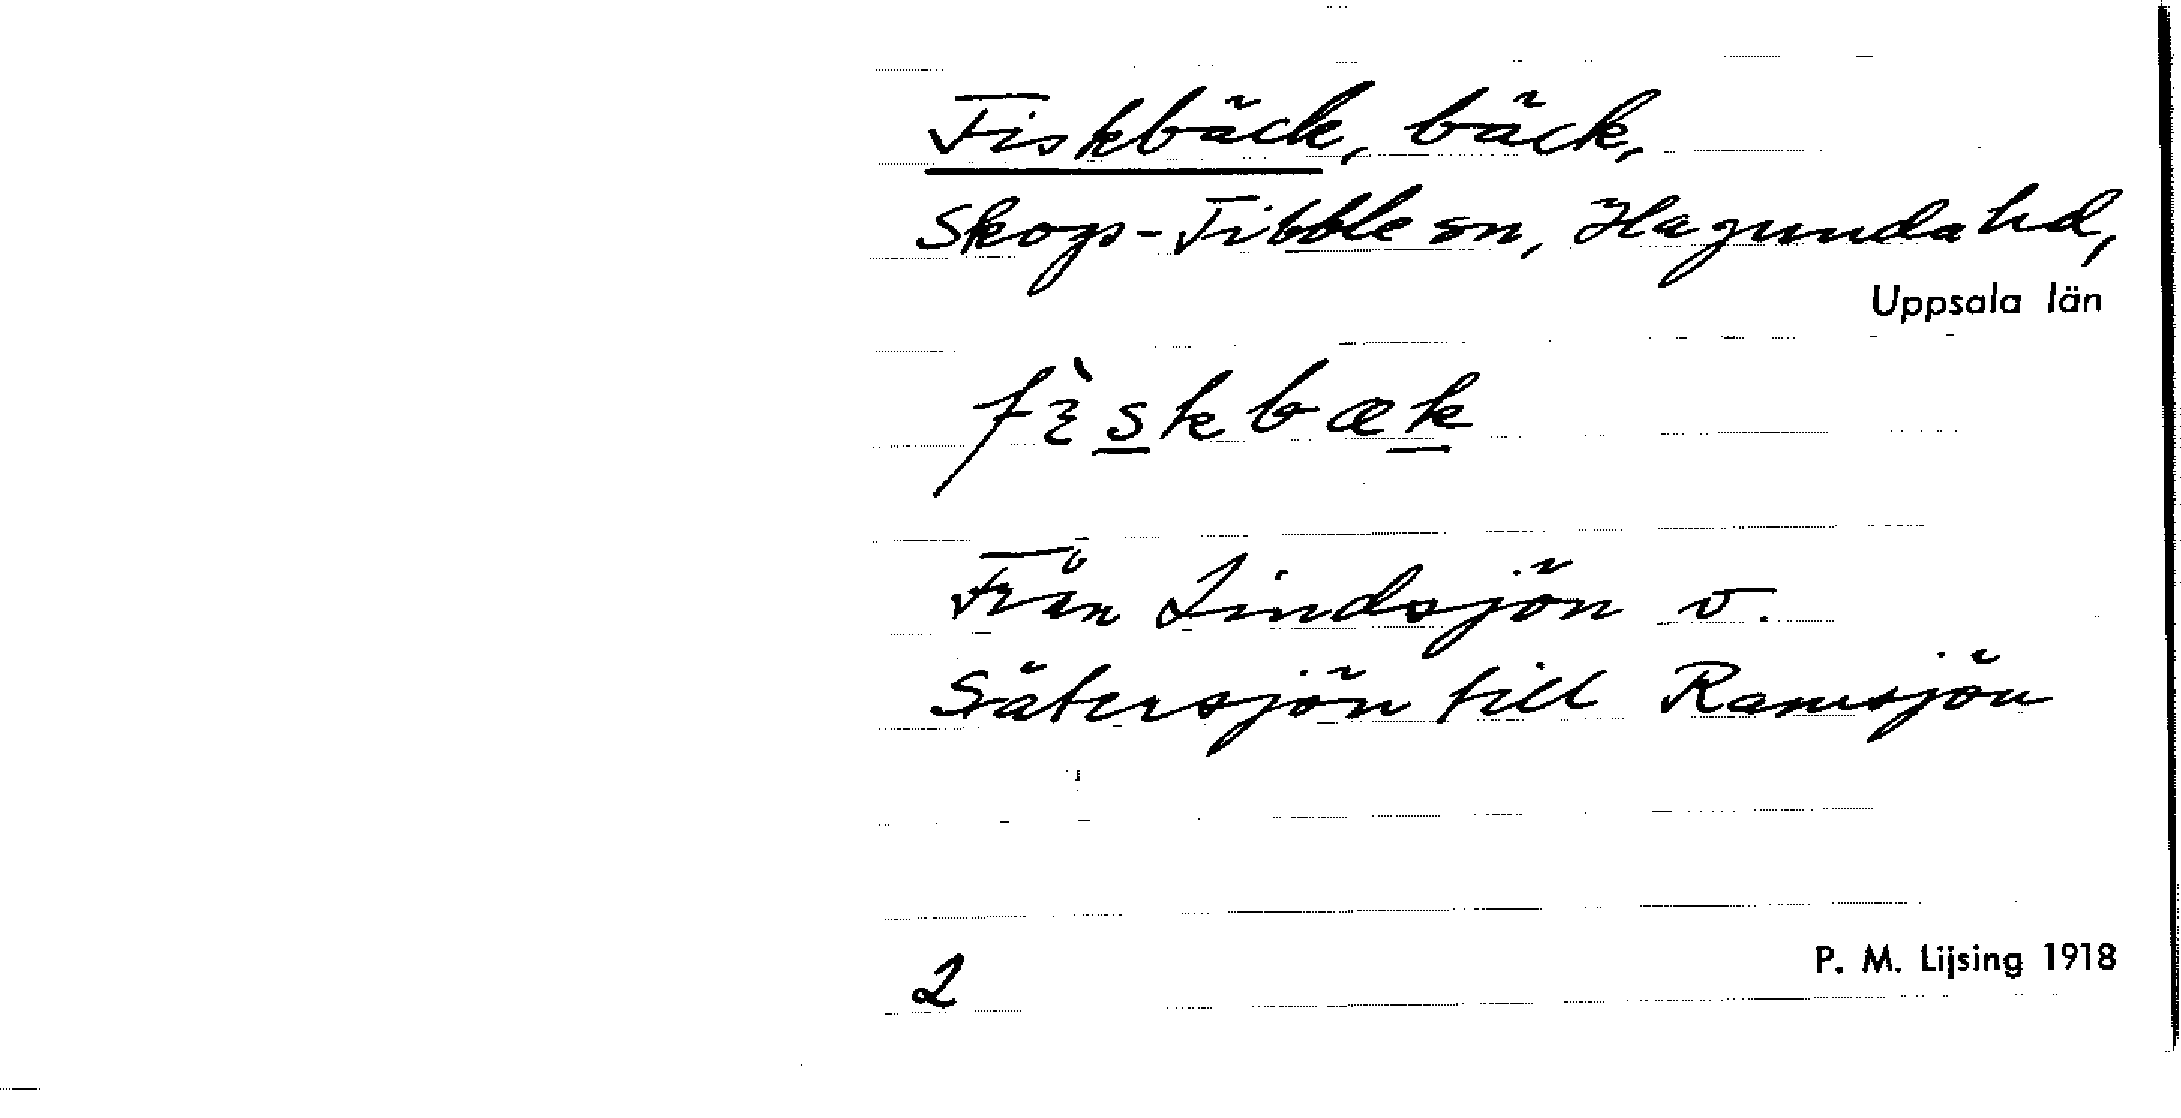 Fiskbäck, bäck,
Skogs-Tibble sn, Hagunda hd,
Uppsala län
fìskbæk
Från Lindsjön o.
Sätersjön till Ramsjön
2
P. M. Lijsing 1918